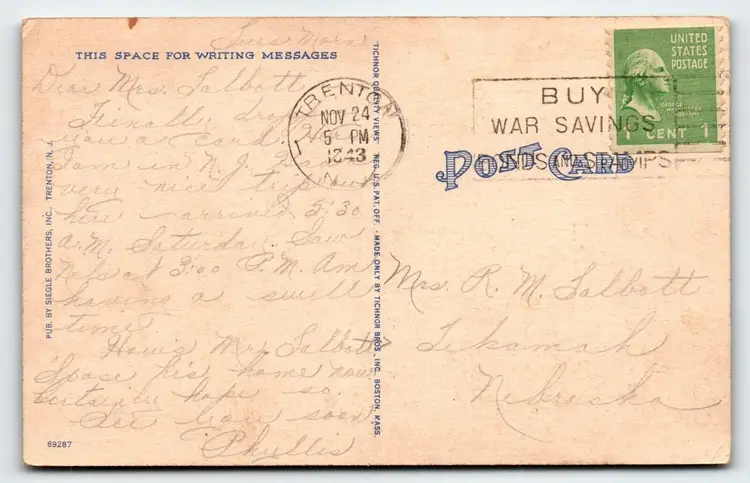 Tues Morn
THIS SPACE FOR WRITING MESSAGES
Dear Mrs. Talbott
Finally drop
you a card. Here
I am in N.J. Had a
very nice trip out
here arrived 5:30
a.M. Saturday. Saw
at 3:00 P.M. Am
having a swell
time
How's Mr. Talbott
'Spose his home now
certainly hope so.
See you soon
Phyllis
69287
PUB. BY SIEGLE BROTHERS, INC. TRENTON, N. J.
TICHNOR QUALITY VIEWS REG. U.S. PAT. OFF. - MADE ONLY BY TICHNOR BROS., INC. BOSTON, MASS.
TRENTON
NOV 24
5 PM
1943
N.
BUY
WAR SAVINGS
BONDS AND STAMPS
UNITED
STATES
POSTAGE
GEORGE WASHINGTON
1 CENT 1
POST CARD
Mrs. R. M. Talbott
Tekamah
Nebraska